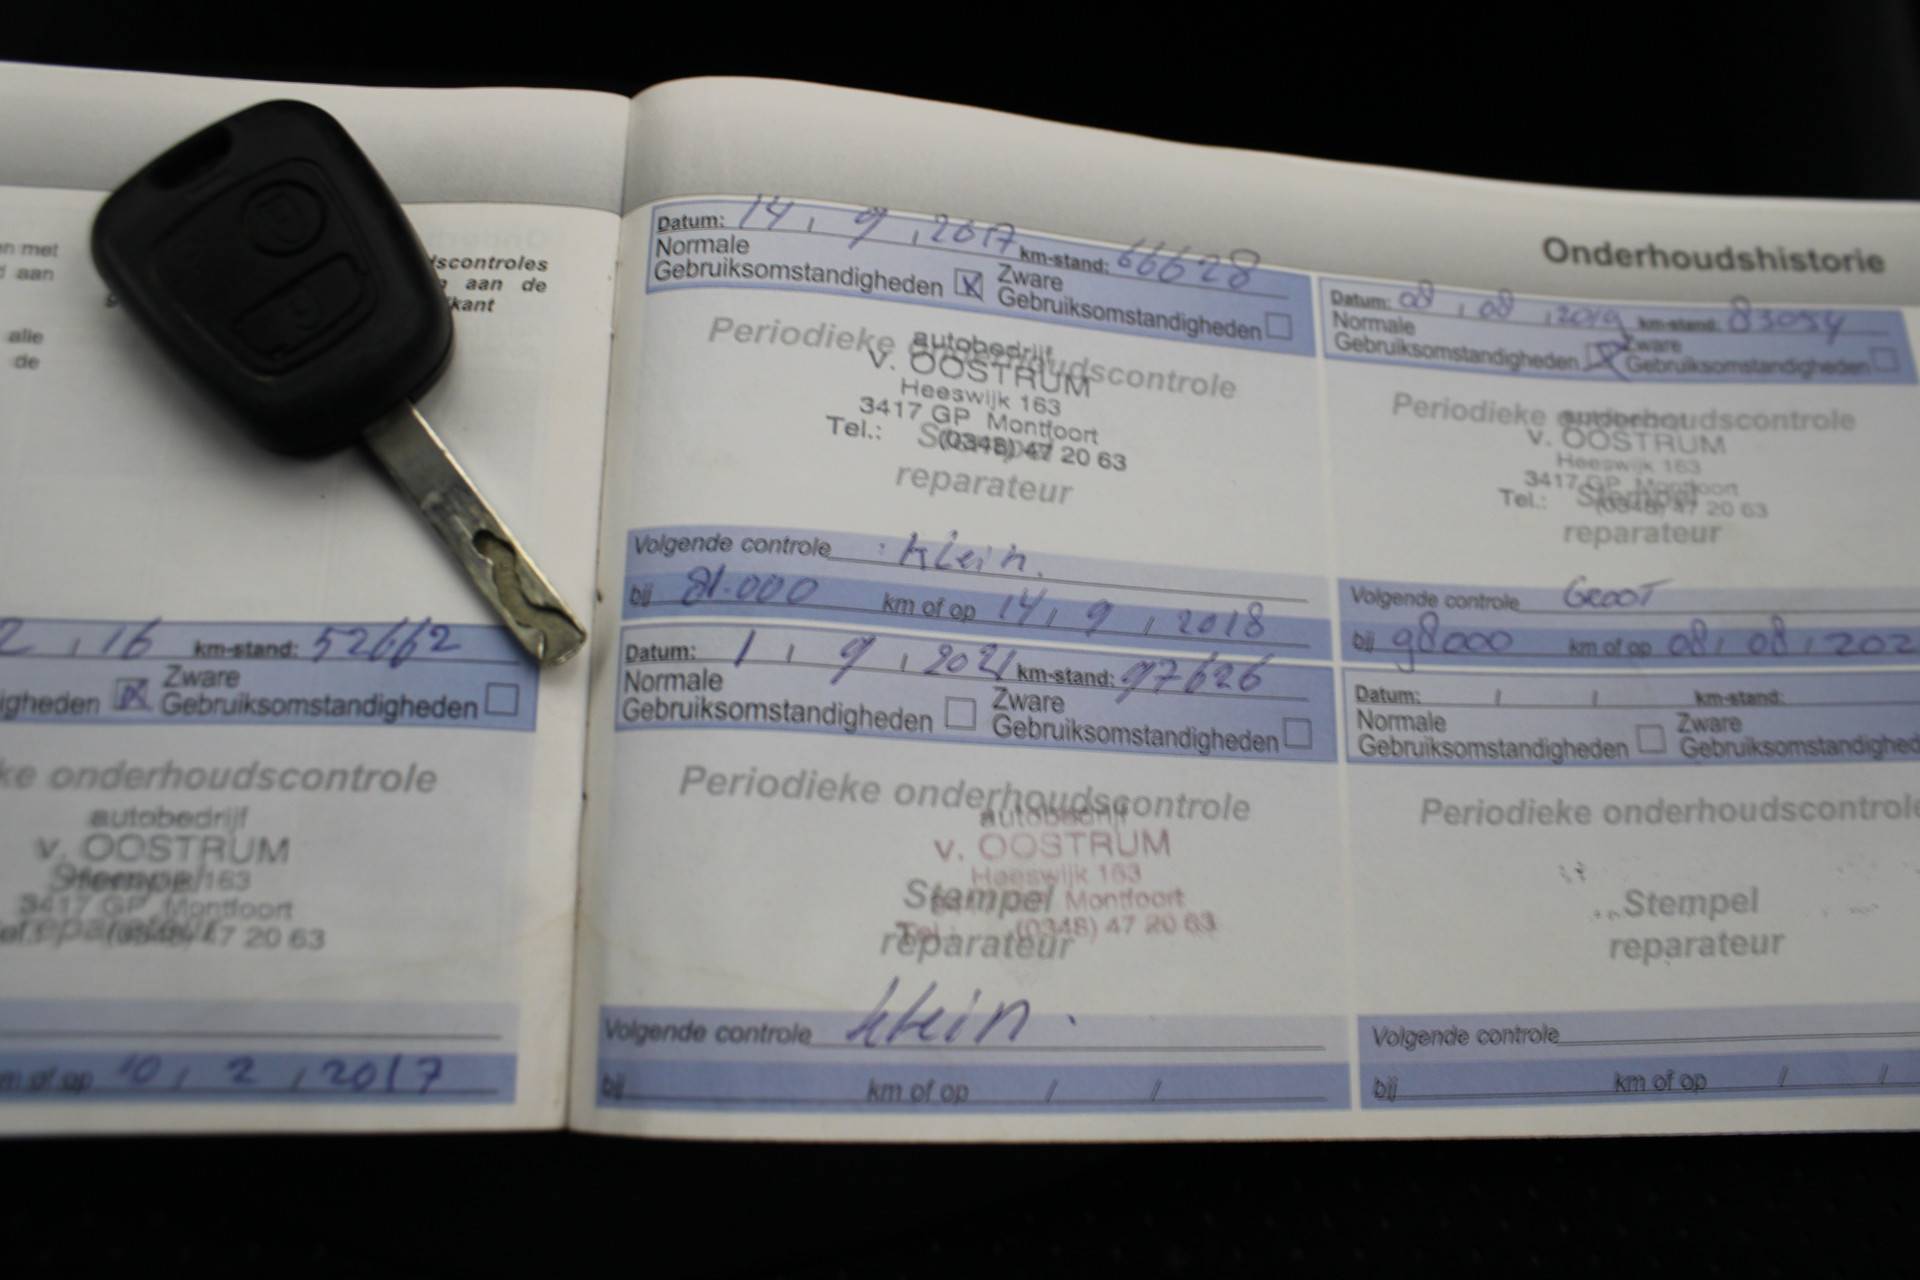 en met
aan
alle
de
scontroles
aan de
kant
2 , 16 km-stand: 52662
igheden Zware
Gebruiksomstandigheden
ke onderhoudscontrole
autobedrijf
v. OOSTRUM
Stempel 163
3417 GP Montfoort
(0348) 47 20 63
m of op 10 , 2 , 2017
Datum: 14 , 9 , 2017 km-stand: 66628
Normale
Gebruiksomstandigheden Zware
Gebruiksomstandigheden
Periodieke onderhoudscontrole
autobedrijf
V. OOSTRUM
Heeswijk 163
3417 GP Montfoort
Tel.: (0348) 47 20 63
Stempel
reparateur
Volgende controle klein.
bij 81.000 km of op 14 , 9 , 2018
Datum: 1 , 9 , 2021 km-stand: 97626
Normale
Gebruiksomstandigheden Zware
Gebruiksomstandigheden
Periodieke onderhoudscontrole
autobedrijf
v. OOSTRUM
Heeswijk 163
Stempel Montfoort
Tel.: (0348) 47 20 63
reparateur
Volgende controle klein.
bij km of op / /
Onderhoudshistorie
Datum: 08 , 08 , 2019 km-stand: 83054
Normale
Gebruiksomstandigheden Zware
Gebruiksomstandigheden
Periodieke onderhoudscontrole
autobedrijf
V. OOSTRUM
Heeswijk 163
3417 GP Montfoort
Tel.: (0348) 47 20 63
Stempel
reparateur
Volgende controle GROOT
bij 98000 km of op 08 , 08 , 202
Datum: / / km-stand:
Normale
Gebruiksomstandigheden Zware
Gebruiksomstandighed
Periodieke onderhoudscontrole
Stempel
reparateur
Volgende controle
bij km of op / /